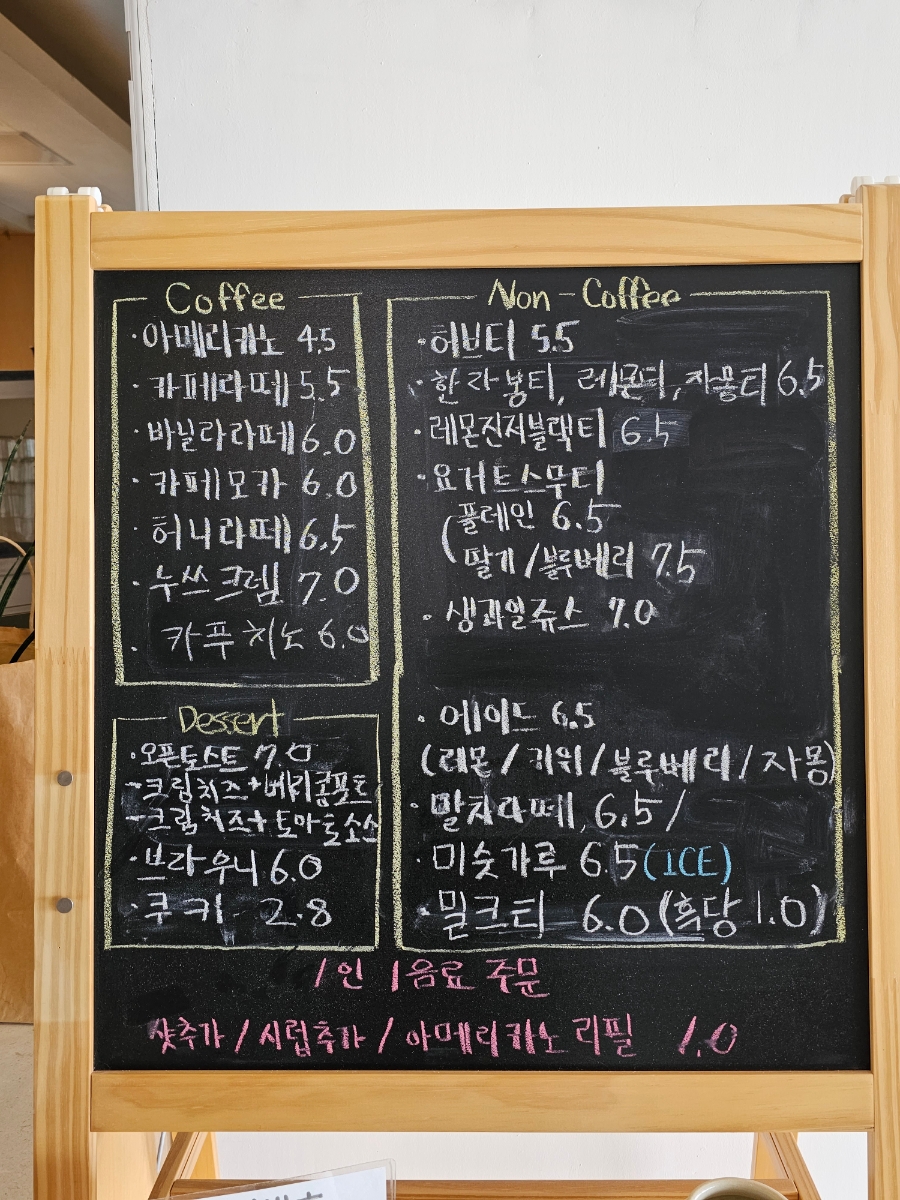 Coffee
·아메리카노 4.5
·카페라떼 5.5
·바닐라라떼 6.0
·카페모카 6.0
·허니라떼 6.5
·누쓰 크렘 7.0
·카푸치노 6.0
Dessert
·오픈토스트 7.0
-크림치즈+베리콤포트
-크림치즈+토마토소스
·브라우니 6.0
·쿠키 2.8
Non-Coffee
·허브티 5.5
·한라봉티, 레몬티, 자몽티 6.5
·레몬진저블랙티 6.5
·요거트스무디
(플레인 6.5
딸기/블루베리 7.5
·생과일쥬스 7.0
·에이드 6.5
(레몬/키위/블루베리/자몽)
·말차라떼 6.5/
·미숫가루 6.5(ICE)
·밀크티 6.0(흑당 1.0)
1인 1음료 주문
샷추가/시럽추가/아메리카노 리필 1.0